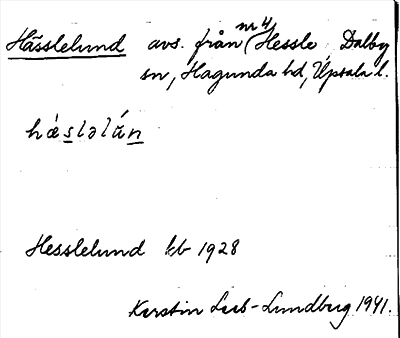 Hässlelund avs. från nr 4 Hessle, Dalby
sn, Hagunda hd, Upsala l.
hæ̀slǝlún
Hesslelund kb 1928
Kerstin Lundberg 1941.